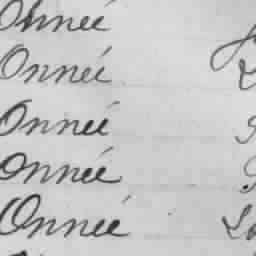 Onnée
Onnée
Onnée
Onnée
Onnée